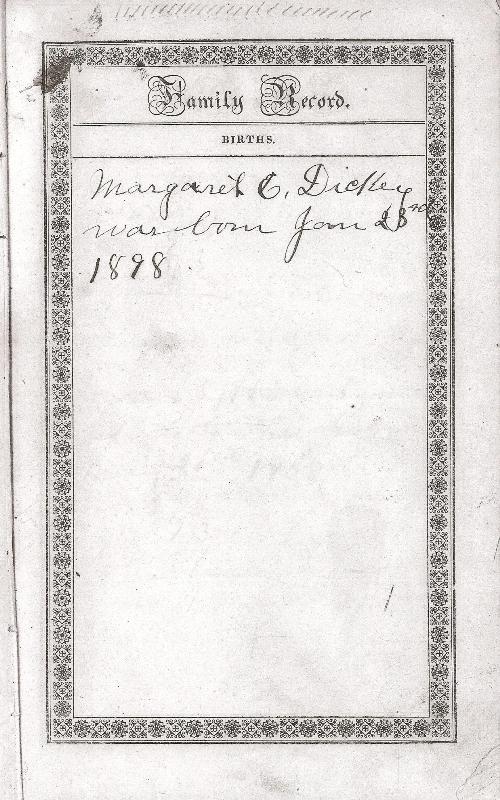 Family Record.
BIRTHS.
Margaret C. Dickey
was born Jan 23rd
1898